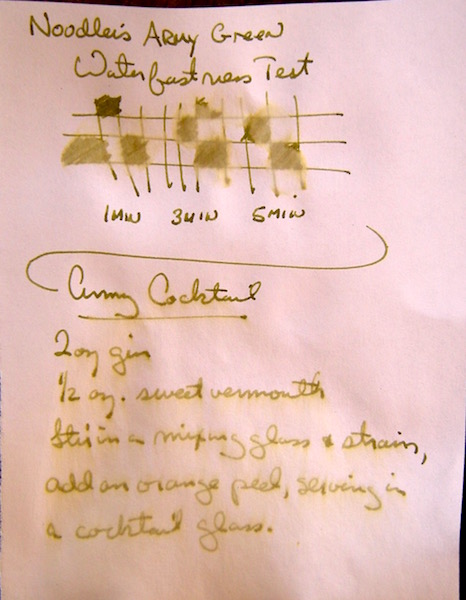 Noodler's Army Green
Waterfastness Test
1 MIN 3 MIN 5 MIN
Army Cocktail
2 oz gin
1/2 oz. sweet vermouth
Stir in a mixing glass & strain,
add an orange peel, serving in
a cocktail glass.